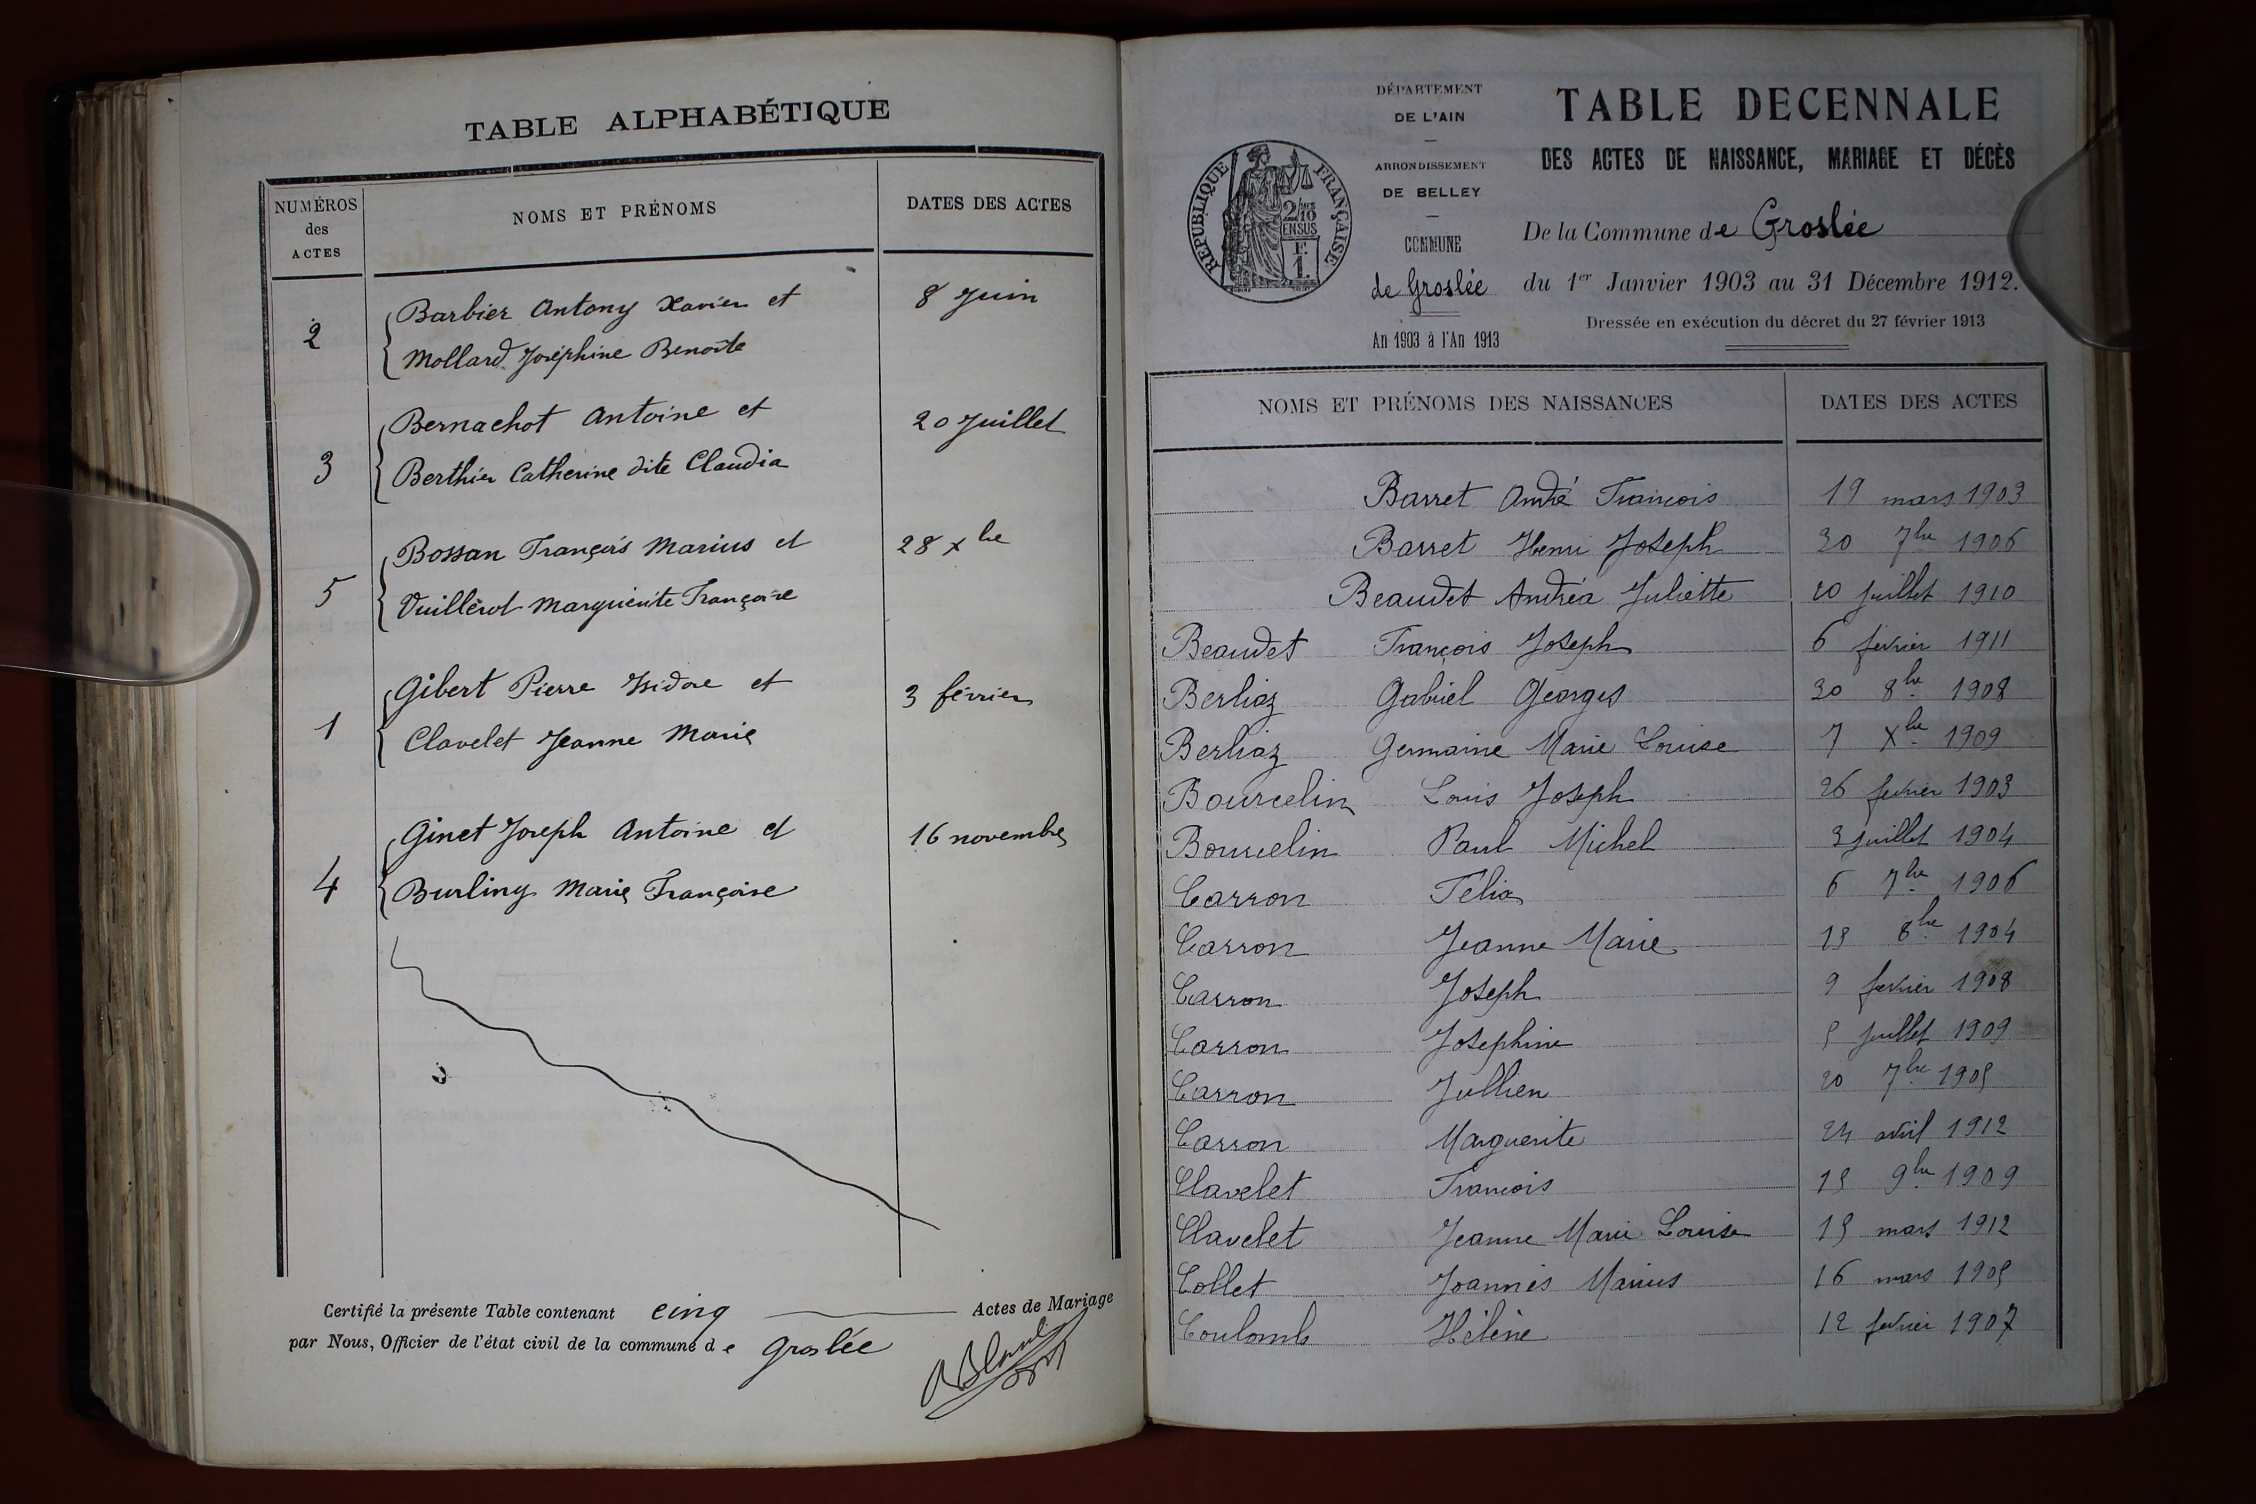 TABLE ALPHABÉTIQUE
NUMÉROS
des
ACTES
NOMS ET PRÉNOMS
DATES DES ACTES
2
Barbier Antony Xavier et
8 Juin
Mollard Joséphine Benoite
3
Bernachot Antoine et
20 Juillet
Berthier Catherine dite Claudia
5
Bossan François Marius et
28 Xbre
Vuillerot Marguerite Françoise
1
Gibert Pierre Isidore et
3 février
Clavelet Jeanne Marie
4
Ginet Joseph Antoine et
16 novembre
Burliny Marie Françoise
Certifié la présente Table contenant cinq Actes de Mariage
par Nous, Officier de l'état civil de la commune de Groslée
RÉPUBLIQUE FRANÇAISE
2/10
EN SUS
F
1
DÉPARTEMENT
DE L'AIN
ARRONDISSEMENT
DE BELLEY
COMMUNE
de Groslée
An 1903 à l'An 1913
TABLE DECENNALE
DES ACTES DE NAISSANCE, MARIAGE ET DÉCÈS
De la Commune de Groslée
du 1er Janvier 1903 au 31 Décembre 1912.
Dressée en exécution du décret du 27 février 1913
NOMS ET PRÉNOMS DES NAISSANCES
DATES DES ACTES
Barret André François 19 mars 1903
Barret Henri Joseph 30 7bre 1906
Beaudet Andréa Juliette 20 juillet 1910
Beaudet François Joseph 6 février 1911
Berliaz Gabriel Georges 30 8bre 1908
Berliaz Germaine Marie Louise 7 Xbre 1909
Bourcelin Louis Joseph 26 fevrier 1903
Bourcelin Paul Michel 3 juillet 1904
Carron Félix 6 7bre 1906
Carron Jeanne Marie 15 8bre 1904
Carron Joseph 9 fevrier 1908
Carron Josephine 5 juillet 1909
Carron Jullien 20 7bre 1905
Carron Marguerite 24 avril 1912
Clavelet François 15 9bre 1909
Clavelet Jeanne Marie Louise 15 mars 1912
Collet Joannès Marius 16 mars 1905
Coulomb Hélène 12 fevrier 1907